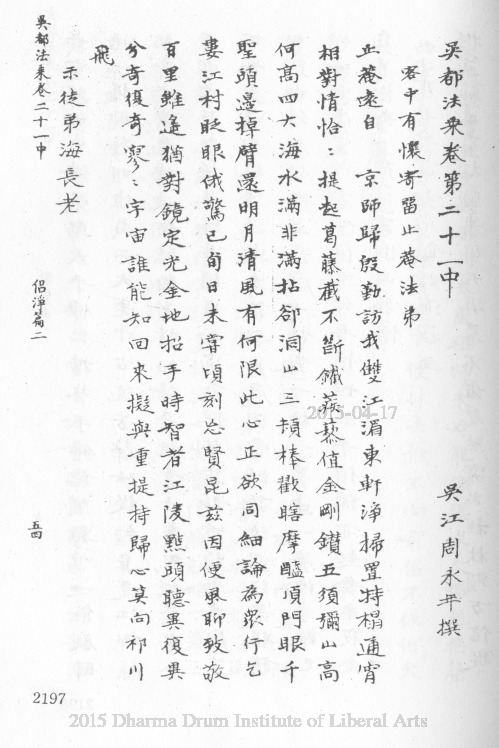 吳都法乘卷第二十一中
吳江周永年撰
客中有懷寄留止菴法弟
止菴遠自　京師歸殷勤訪我雙江湄東軒淨掃置特榻通宵
相對情怡〻提起葛藤截不斷鐵蒺藜值金剛鑽五須彌山高
何高四大海水滿非滿拈卻洞山三頓棒戳瞎摩醯頂門眼千
聖頭邊掉臂還明月清風有何限此心正欲同細論為眾行乞
婁江村眨眼俄驚已旬日未嘗頃刻忘賢昆茲因便風聊致敬
百里雖遙猶對鏡定光金地招手時智者江陵點頭聽異復異
兮奇復奇寥〻宇宙誰能知回來擬與重提持歸心莫向祁川
飛
示徒弟海長老
吳都法乘卷二十一中
侶淨篇二
五四
2197
2015-04-17
2015 Dharma Drum Institute of Liberal Arts